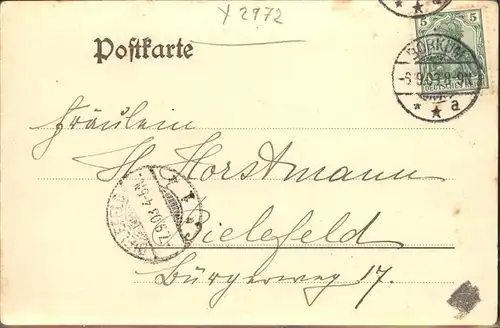 Y 2972
Postkarte
5
BORKUM
-6.9.03.8-9N.
a
Fräulein
H. Horstmann
7.9.03.4-5N.
Bielefeld
Bürgerweg 17.